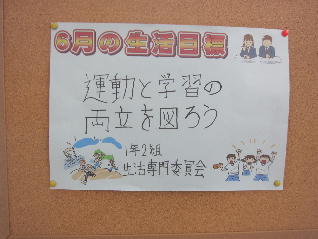 6月の生活目標
運動と学習の
両立を図ろう
1年2組
生活専門委員会